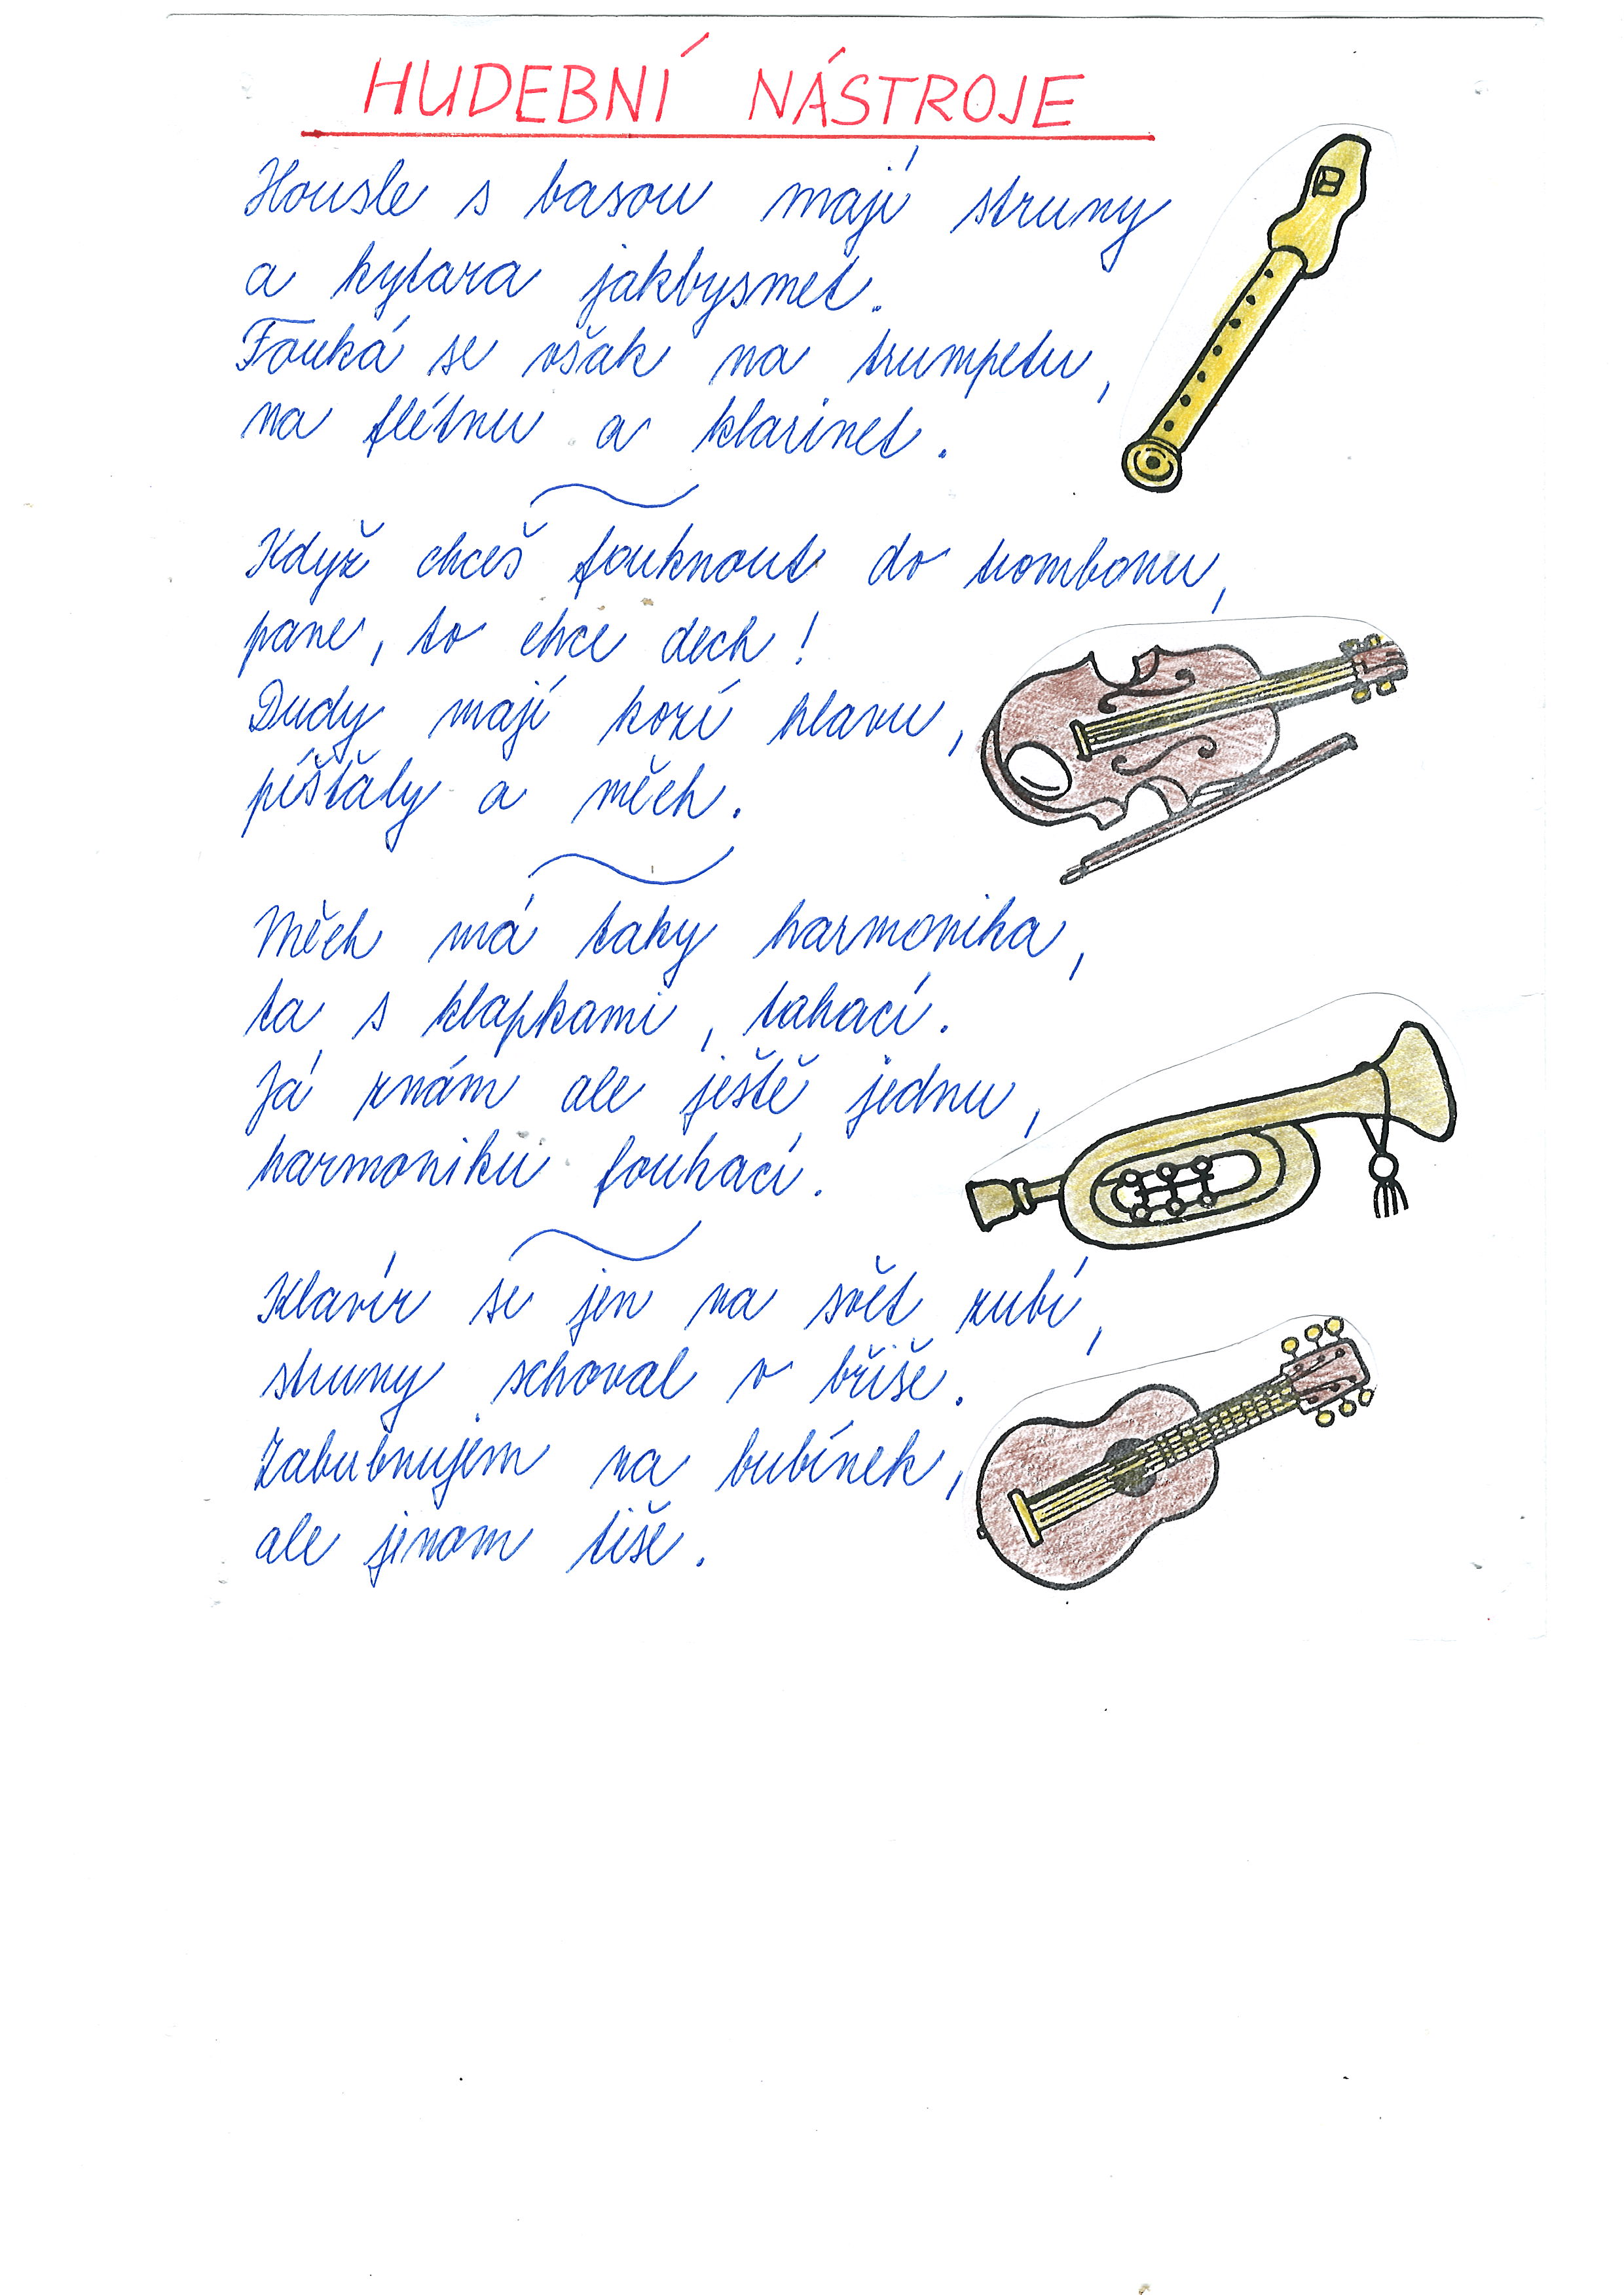 HUDEBNÍ NÁSTROJE
Housle s basou mají struny
a kytara jakbysmet.
Fouká se však na trumpetu,
na flétnu a klarinet.
Když chceš fouknout do trombonu,
pane, to chce dech!
Dudy mají kozí hlavu,
píšťaly a měch.
Měch má taky harmonika,
ta s klapkami, tahací.
Já znám ale ještě jednu,
harmoniku foukací.
Klavír se jen na svět zubí,
struny schoval v břiše.
Zabubnujem na bubínek,
ale jenom tiše.